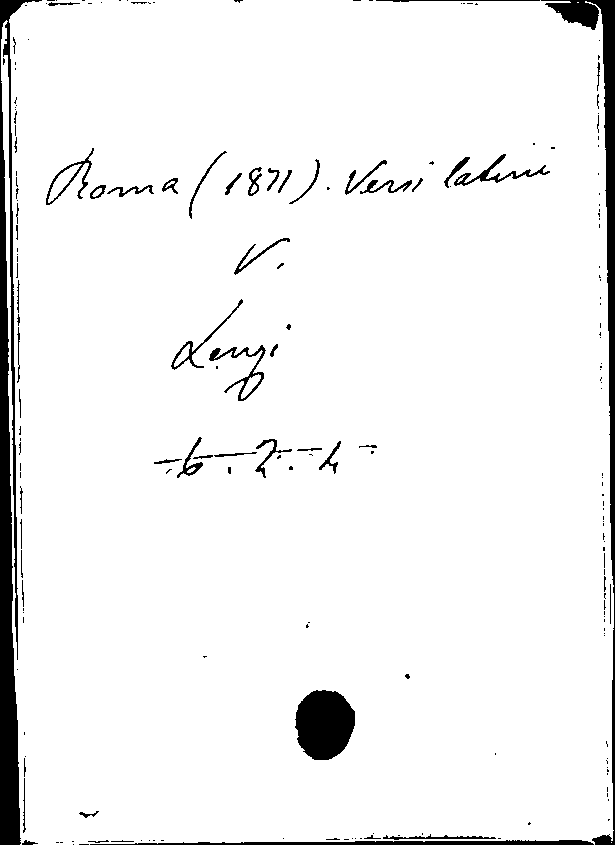 Roma (1871). Versi latini
V.
Lenzi
6.2.4